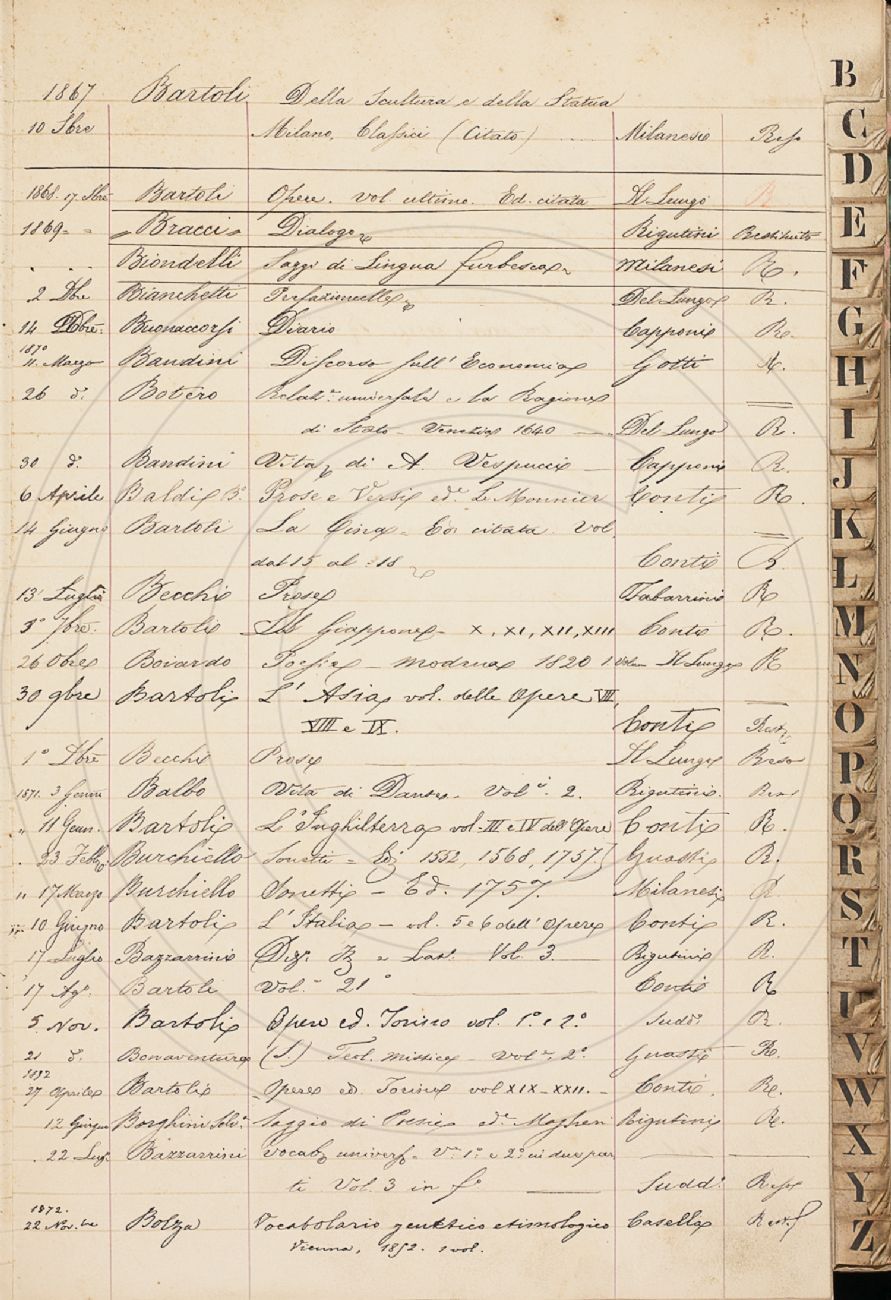 1867 Bartoli Della Scultura e della Statua
10 Sbre Milano, Classici (Citato) Milanesi Resp
1868. 17 Sbre Bartoli Opere. Vol ultimo. Ed. citata Il Lungo R
1869 " " Bracci Dialoghi Rigutini Restituito
" " Biondelli Saggi di Lingua furbesca Milanesi R.
2 Xbre Bianchetti Del Lungo R.
14 Xbre. Buonaccorsi Diario Capponi R.
1870
11 Marzo Bandini Discorso sull' Economia Gotti R.
26 d.° Botero Relaz.ni universali e la Ragione
di Stato - Venezia 1640 — Del Lungo R.
30 d.° Bandini Vita di A. Vespucci — Capponi R.
6 Aprile Baldi B.° Prose e Versi ed.e Le Monnier Conti R.
14 Giugno Bartoli La Cina - Ed. citata Vol.
dal 15 al 18 Conti R.
13 Luglio Becchi Prose Tabarrini R
3° 7bre. Bartoli Il Giappone - X, XI, XII, XIII Conti R.
26 Obre Boiardo Poesie - Modena 1820 1 Volume Il Lungo R
30 9bre Bartoli L' Asia vol. delle Opere VII,
VIII e IX. Conti Rest.
1° Xbre Becchi Prose Il Lungo Reso
1871. 3 Genn Balbo Vita di Dante. Vol.i 2. Rigutini. Reso
" 11 Genn. Bartoli L'Inghilterra vol. III e IV dell'Opere Conti R.
. 23 Febb.° Burchiello Sonetti = Ediz 1552, 1568, 1757. Guasti R.
" 17 Marzo Burchiello Sonetti - Ed. 1757. Milanesi R
10 Giugno Bartoli L'Italia - vol. 5 e 6 dell' Opere Conti R.
17 Luglio Bazzarini Diz.° It e Lat. Vol. 3. — Rigutini R.
17 Ag.° Bartoli Vol. 21° Conti R
5 Nov. Bartoli Opere ed. Torino vol. 1.° e 2.° Sudd.° R.
21 d.° Bonaventura (S.) Teol. mistica - Vol. 2.° Guasti R.
1872
27 Aprile Bartoli Opere ed. Torino vol XIX - XXII. - Conti. R.
12 Giugno Borghini Saggio di Poesie ed.e Magheri Rigutini R.
. 22 Lug. Bazzarini Vocab.° univers.° V.i 1.° e 2.° in due par
ti Vol. 3 in f.° — Sudd.° Resp
1872.
22 Nov.bre Bolza Vocabolario genetico etimologico Casella Rest.
Vienna, 1852. 1 vol.
B
C
D
E
F
G
H
I
J
K
L
M
N
O
P
Q
R
S
T
U
V
W
X
Y
Z